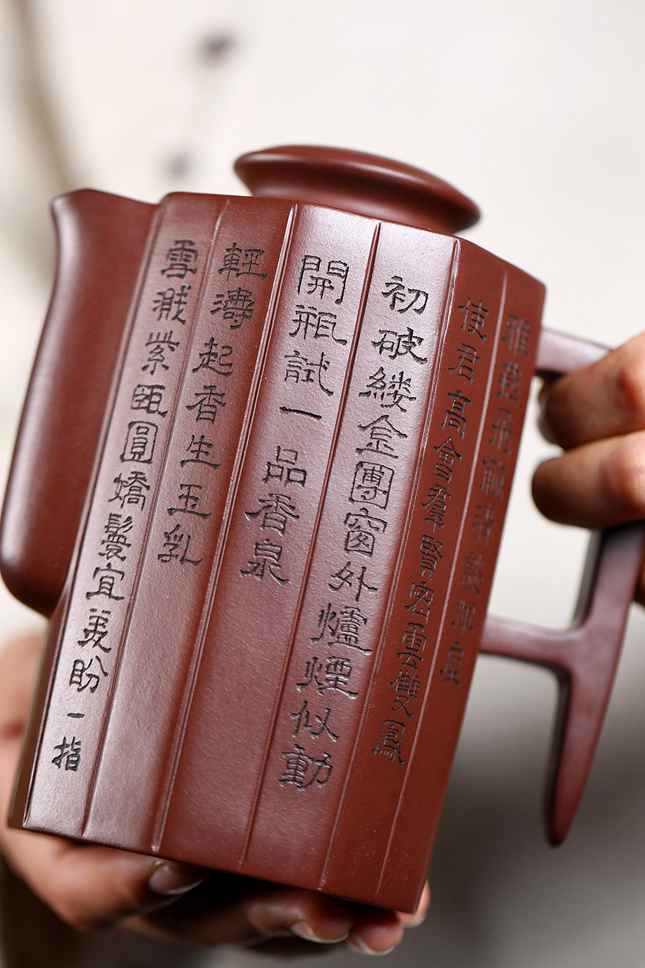 雅燕飛觴清談揮
使君高會羣賢密雲雙鳳
初破縷金團窗外爐煙似動
開瓶試一品香泉
輕濤起香生玉乳
雪濺紫甌圓嬌鬟宜美盼一指